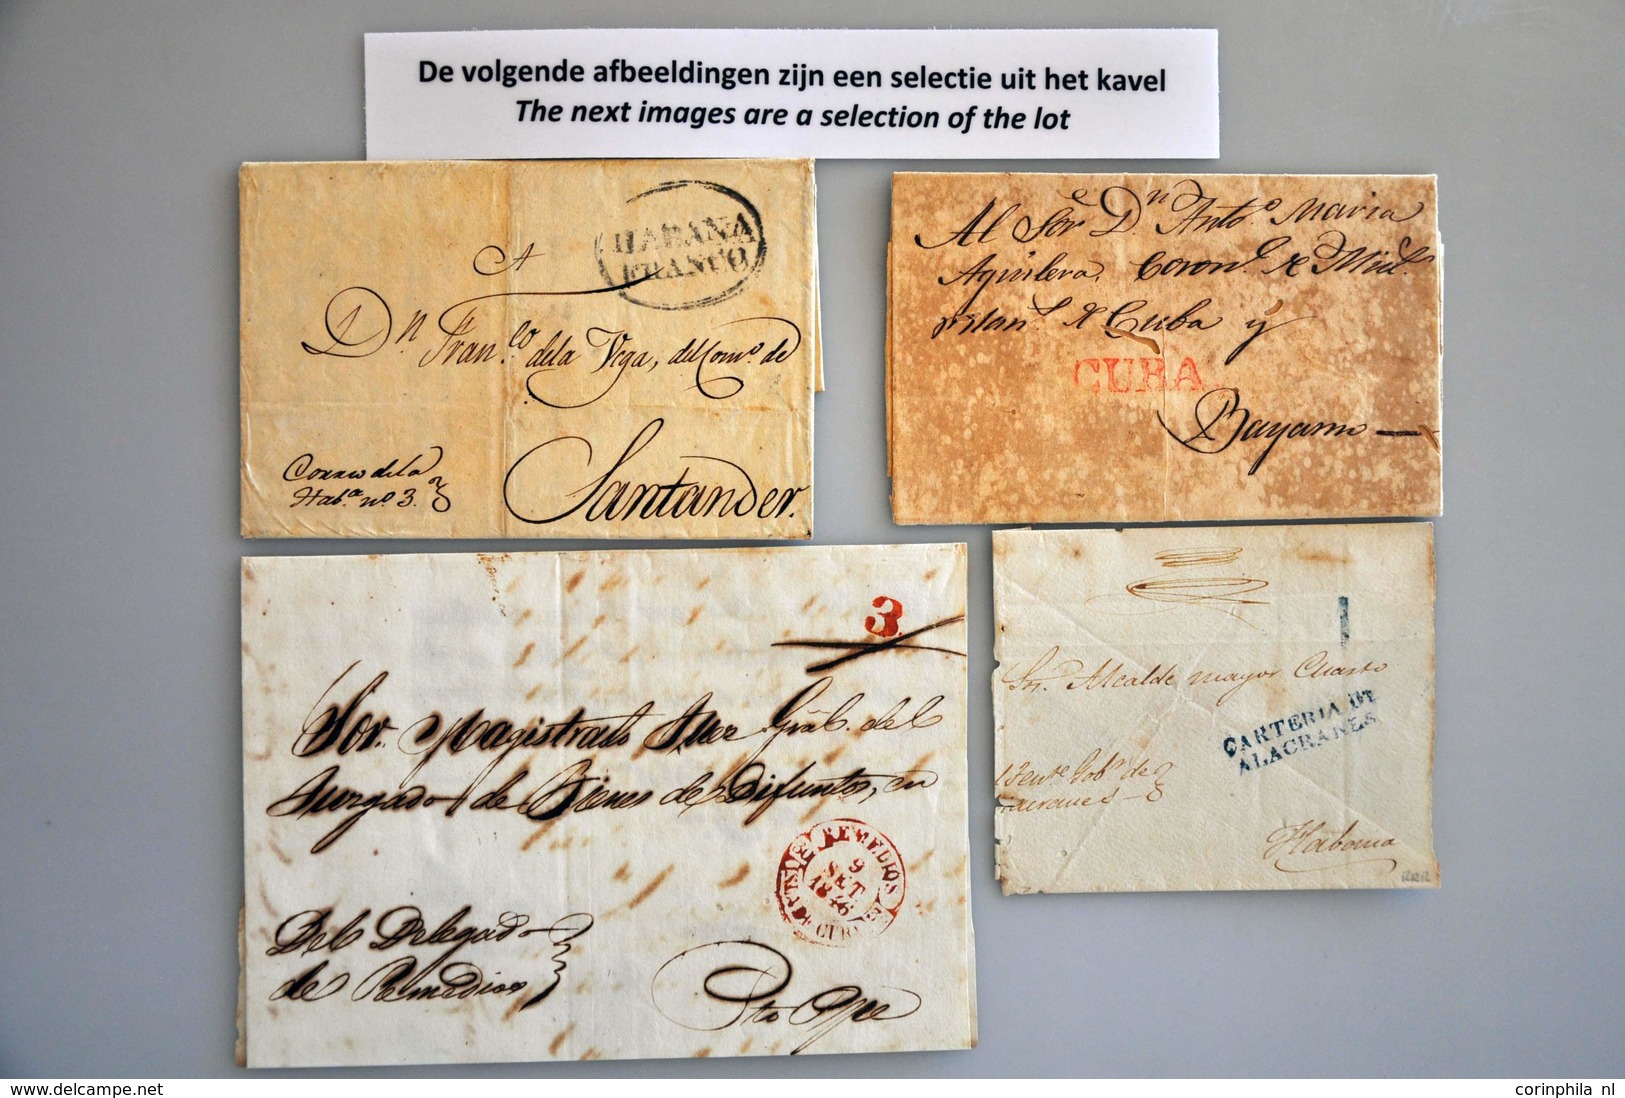 De volgende afbeeldingen zijn een selectie uit het kavel
The next images are a selection of the lot
HABANA
FRANCO
A
Dn Franco dela Vega, del Como de
Santander.
Correo dela
Haba no 3.
Al Sor Dn Anto Maria
Aguilera, Coronl
de Cuba y
CUBA
Bayamo
3
Sor. Magistrado Juez Gral. del
Jurgado de Bienes de Difuntos, en
REMEDIOS
9
SET
1846
CUBA
Del Delegado
de Remedios
Pto Ppe
Sr. Alcalde mayor Cuarto
CARTERIA DE
ALACRANES
Tente Gobr de
Habana
RRR
corinphila nl